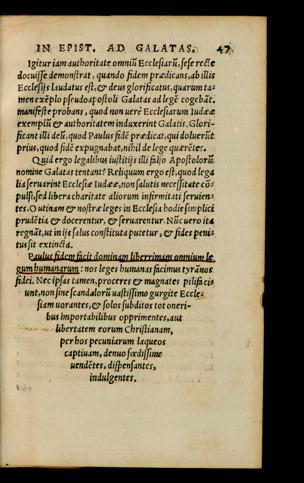 IN EPIST. AD GALATAS. 47
Igitur iam authoritate omniũ Ecclesiarũ, sese recte
docuisse demonstrat, quando fidem prædicans, ab illis
Ecclesijs laudatus est, & deus glorificatus, quarum ta-
men exẽplo pseudoapostoli Galatas ad legẽ cogebãt.
manifeste probans, quod non uerè Ecclesiarum Iudææ
exemplũ & authoritatem induxerint Galatis. Glori-
ficant illi deũ, quod Paulus fidẽ prædicat, qui doluerũt
prius, quod fidẽ expugnabat, nihil de lege quærẽtes.
Quid ergo legalibus iustitijs illi falso Apostolorũ
nomine Galatas tentant? Reliquum ergo est, quod lega
lia seruarint Ecclesiæ Iudææ, non salutis necessitate cõ-
pulsi, sed libera charitate aliorum infirmitati seruien-
tes. O utinam & nostræ leges in Ecclesia hodie simplici
prudẽtia & docerentur, & seruarentur. Nũc uero ita
regnãt, ut in ijs salus constituta putetur, & fides peni-
tus sit extincta.
Paulus fidem facit dominam liberrimam omnium le
gum humanarum: nos leges humanas facimus tyrãnos
fidei. Nec ipsas tamen, proceres & magnates pilifaci-
unt, non sine scandalorũ uastissimo gurgite Eccle-
siam uorantes, & solos subditos tot oneri-
bus importabilibus opprimentes, aut
libertatem eorum Christianam,
per hos pecuniarum laqueos
captiuam, denuo fœdissime
uendẽtes, dispensantes,
indulgentes.